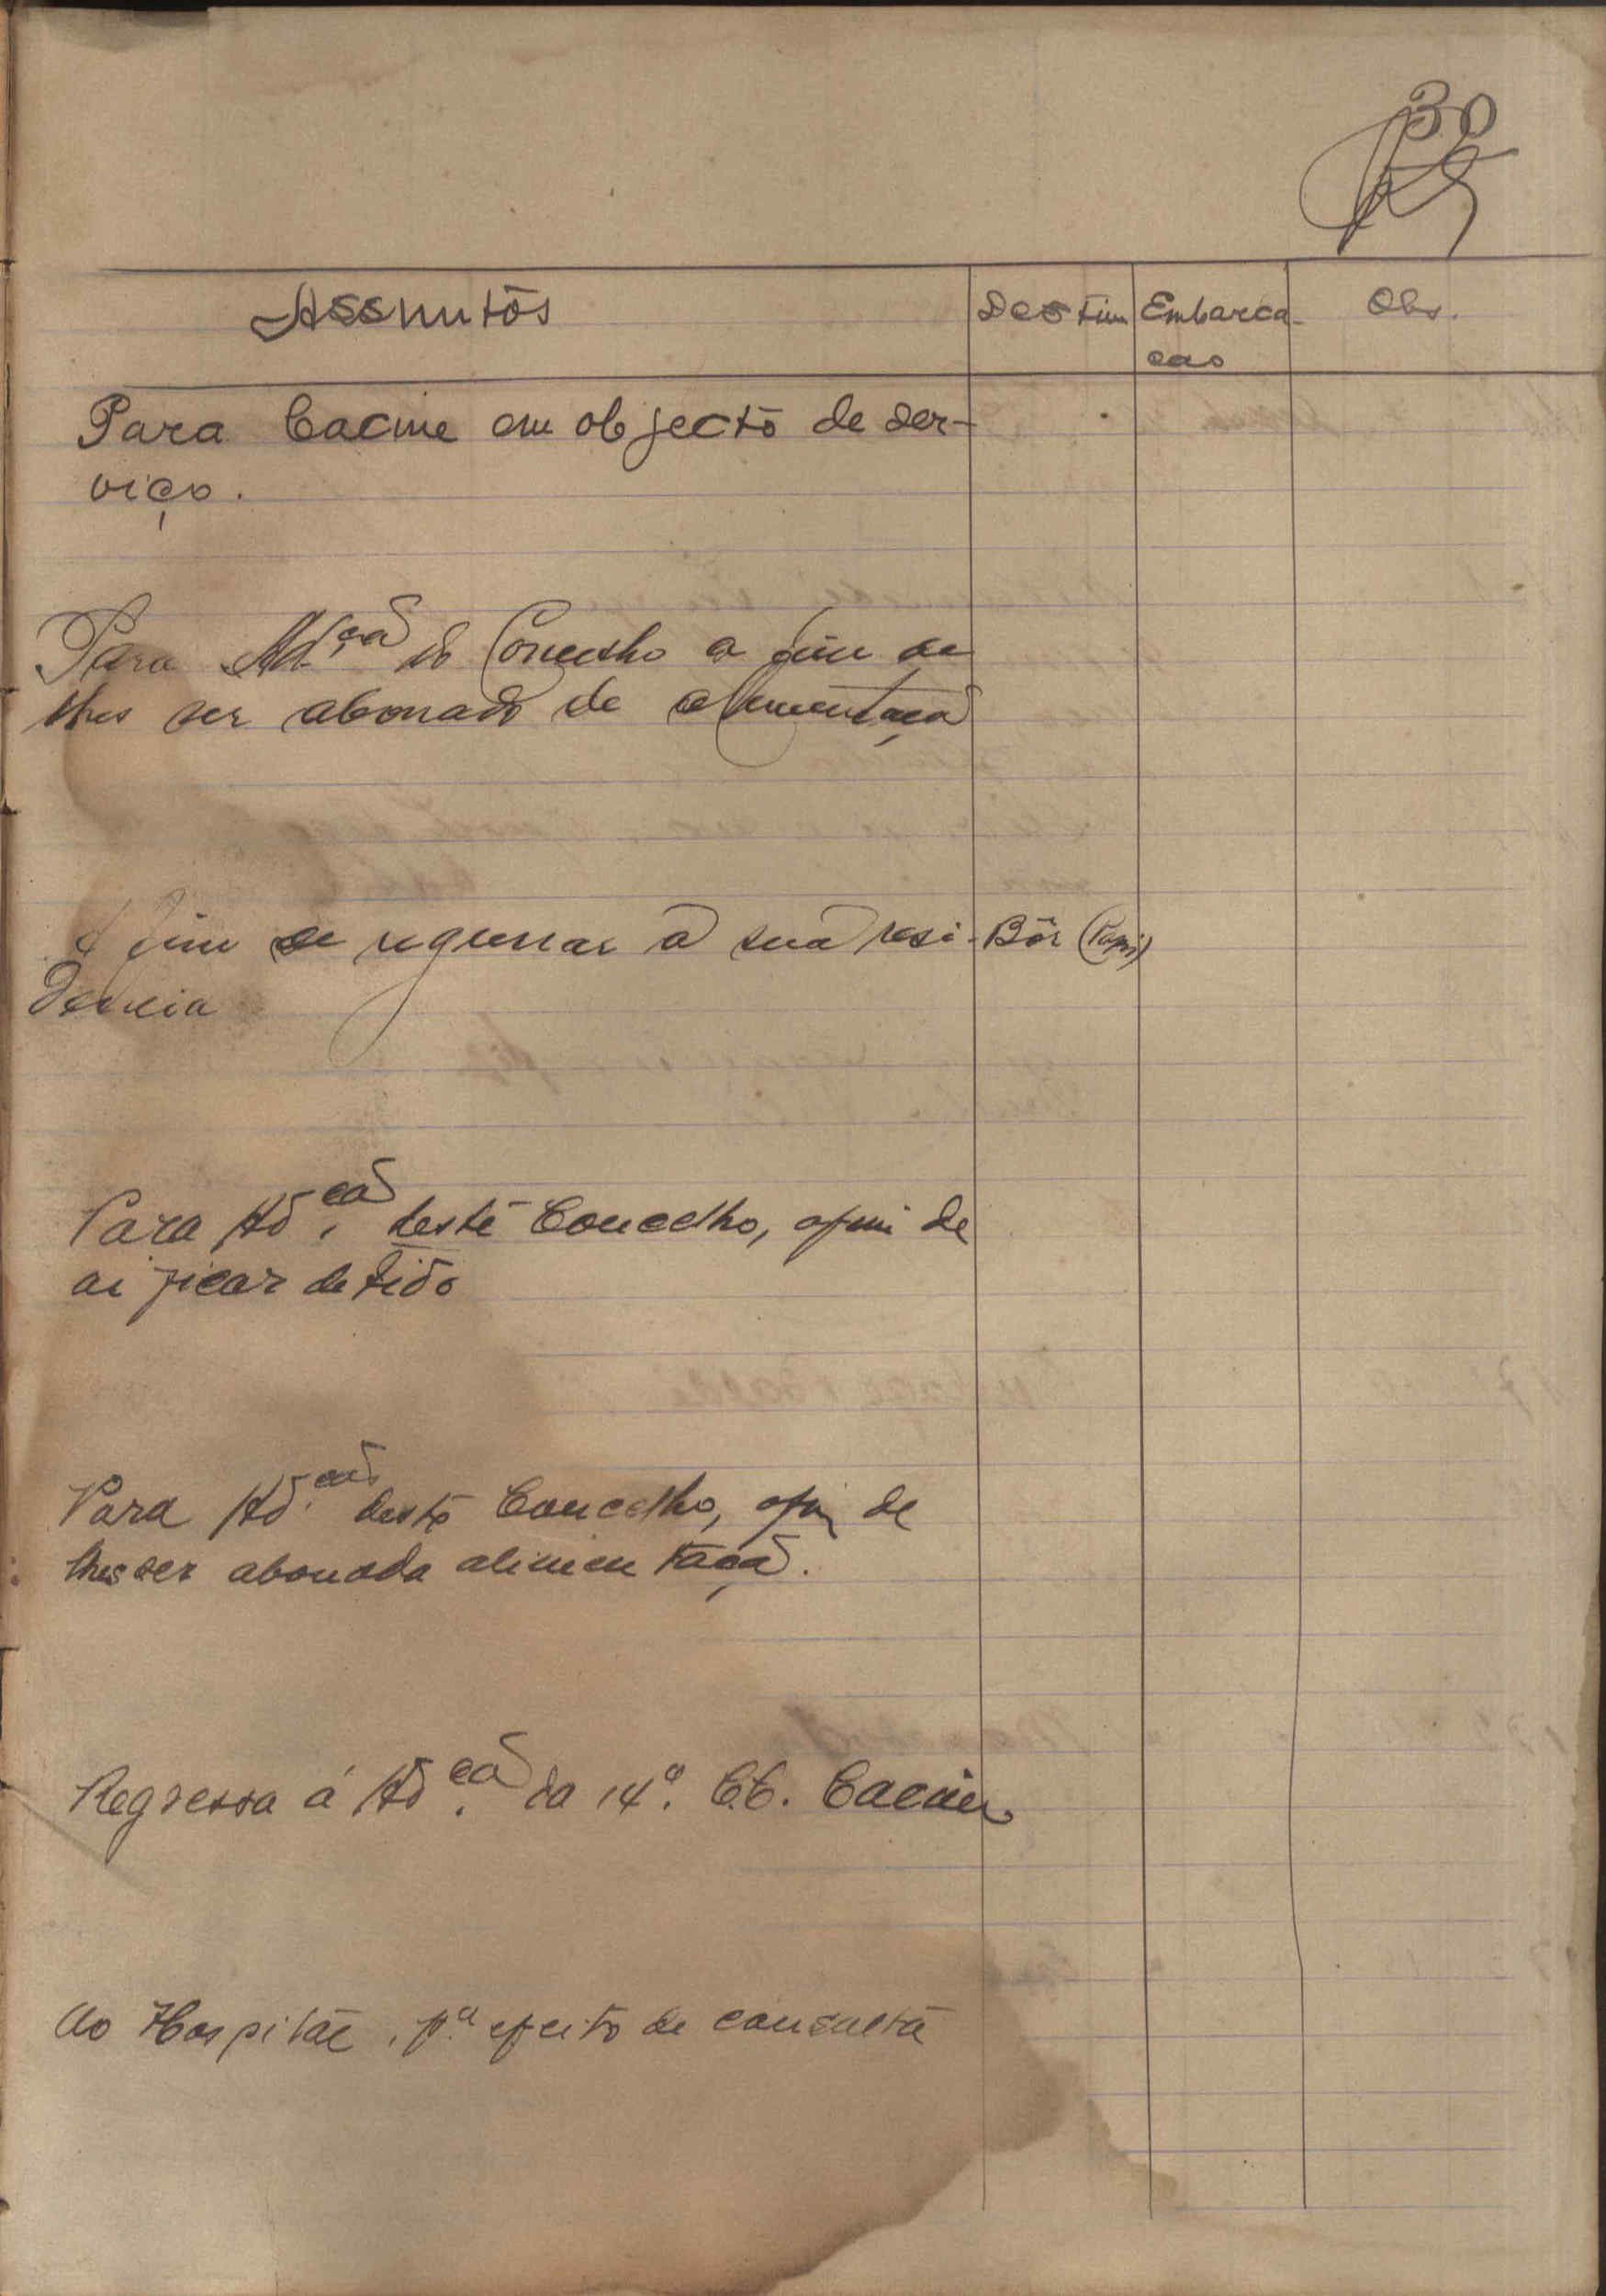 30
Assuntos
Destino
Embarca-
ção
Obs.
Para Cacine em objecto de ser-
viço.
Para Ad.ção do Concelho a fim de
lhes ser abonado de alimentação
A fim de regressar á sua resi-
dencia
Bôr (Papi)
Para Ad.ção deste Concelho, afim de
ai ficar detido
Para Ad.ção deste Concelho, afim de
lhes ser abonada alimentação.
Regressa á Ad.ção da 14ª. C.C. Cacine
Ao Hospital, p.ª efeito de consulta